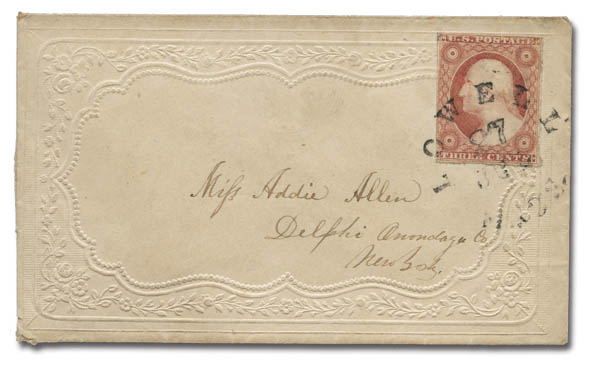 U.S. POSTAGE
THREE CENTS
LOWELL
27
Miss Addie Allen
Delphi Onondaga Co
New York.